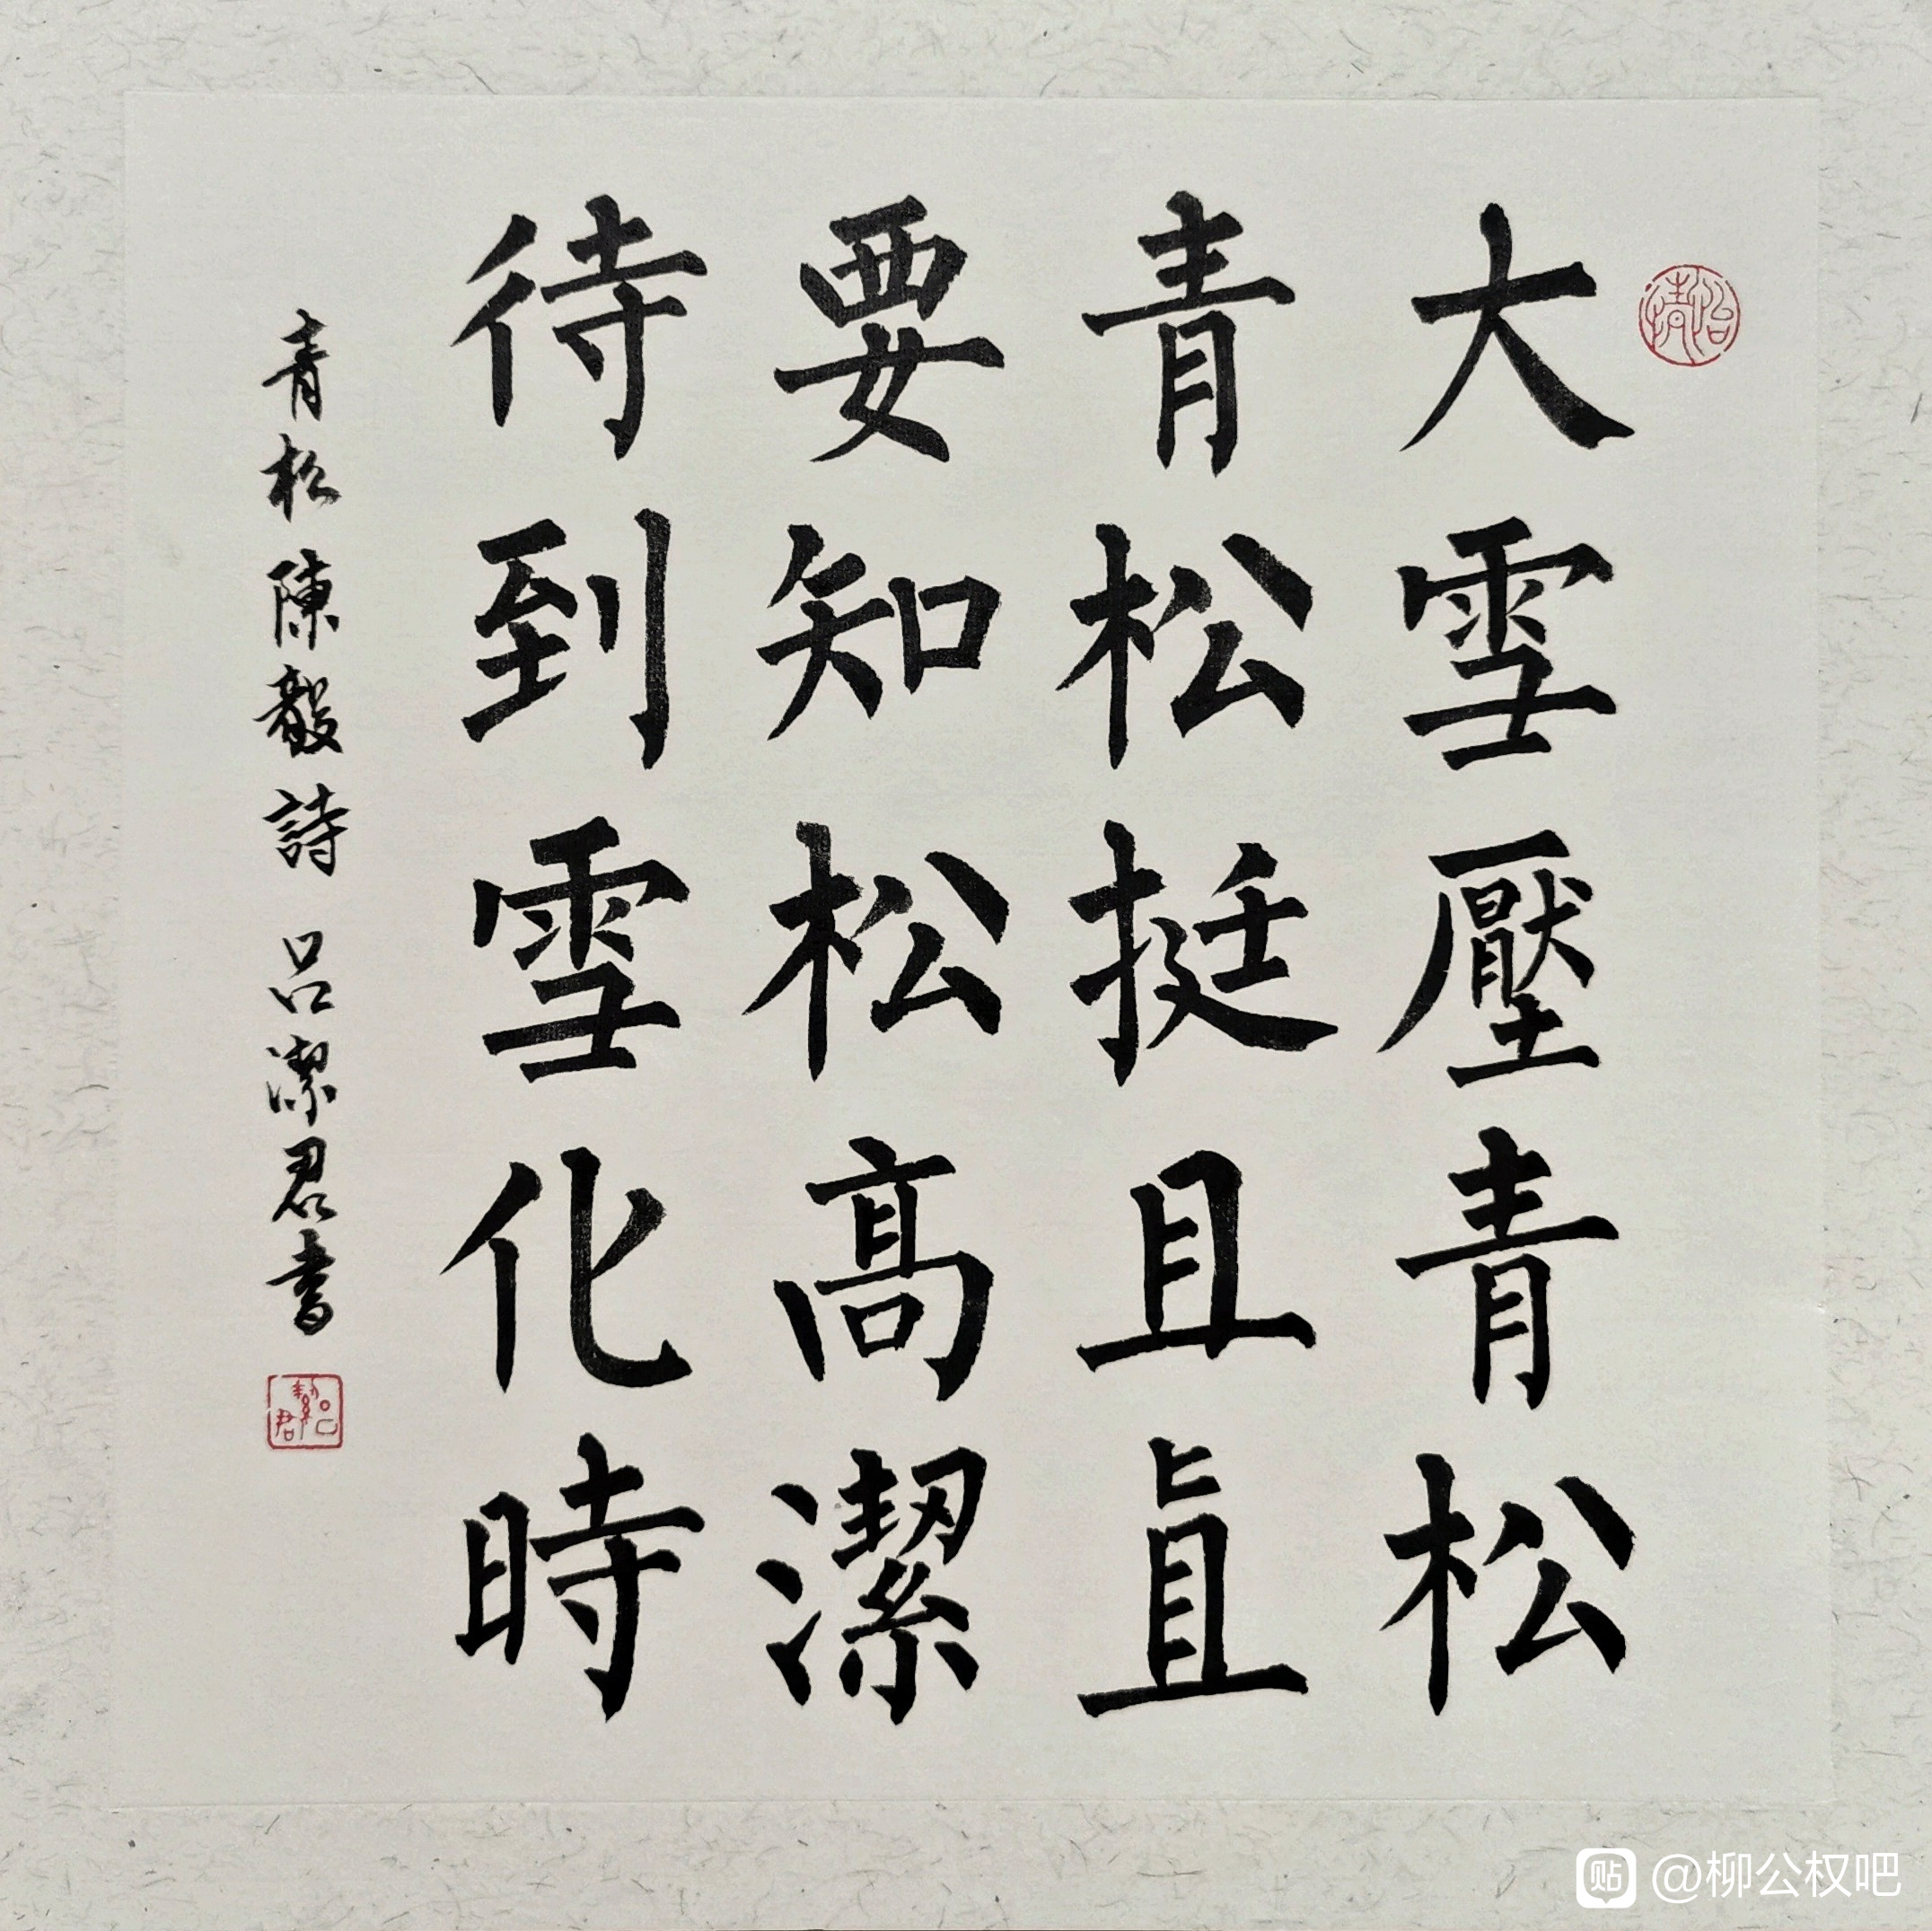 怡情
大雪壓青松
青松挺且直
要知松高潔
待到雪化時
青松 陳毅詩 呂潔君書
呂潔君
贴 @柳公权吧